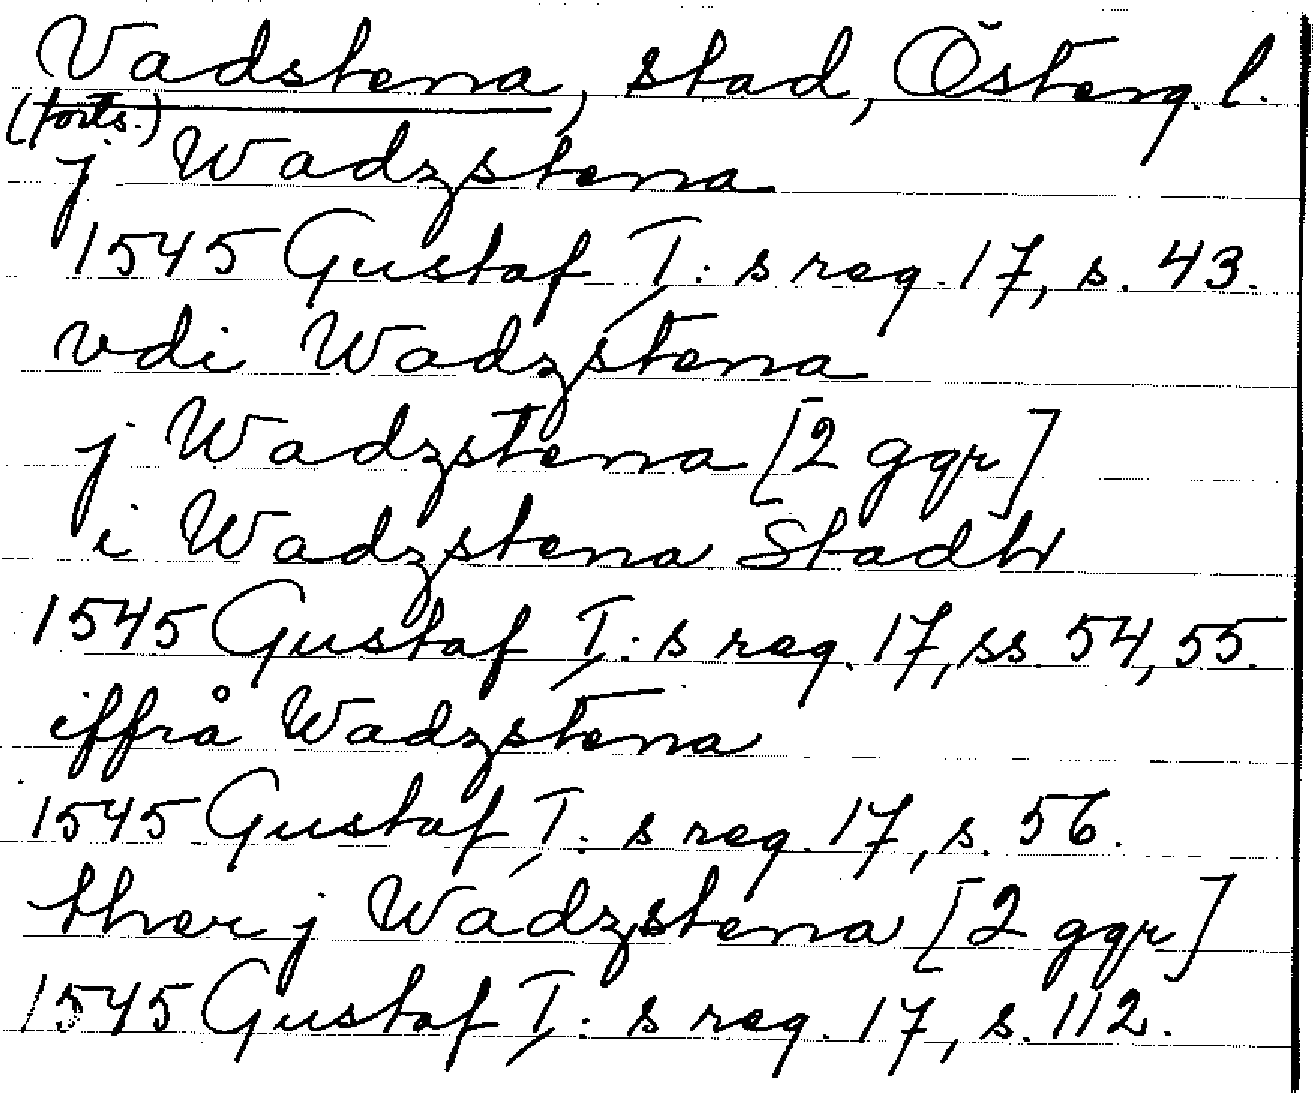 Vadstena, stad, Österg. l.
(forts.)
j Wadzstena
1545 Gustaf I:s reg. 17, s. 43.
vdi Wadzstena
j Wadzstena [2 ggr]
i Wadzstena Stadh
1545 Gustaf I:s reg. 17, ss. 54, 55.
iffrå Wadzstena
1545 Gustaf I:s reg. 17, s. 56.
ther j Wadzstena [2 ggr]
1545 Gustaf I:s reg. 17, s. 112.